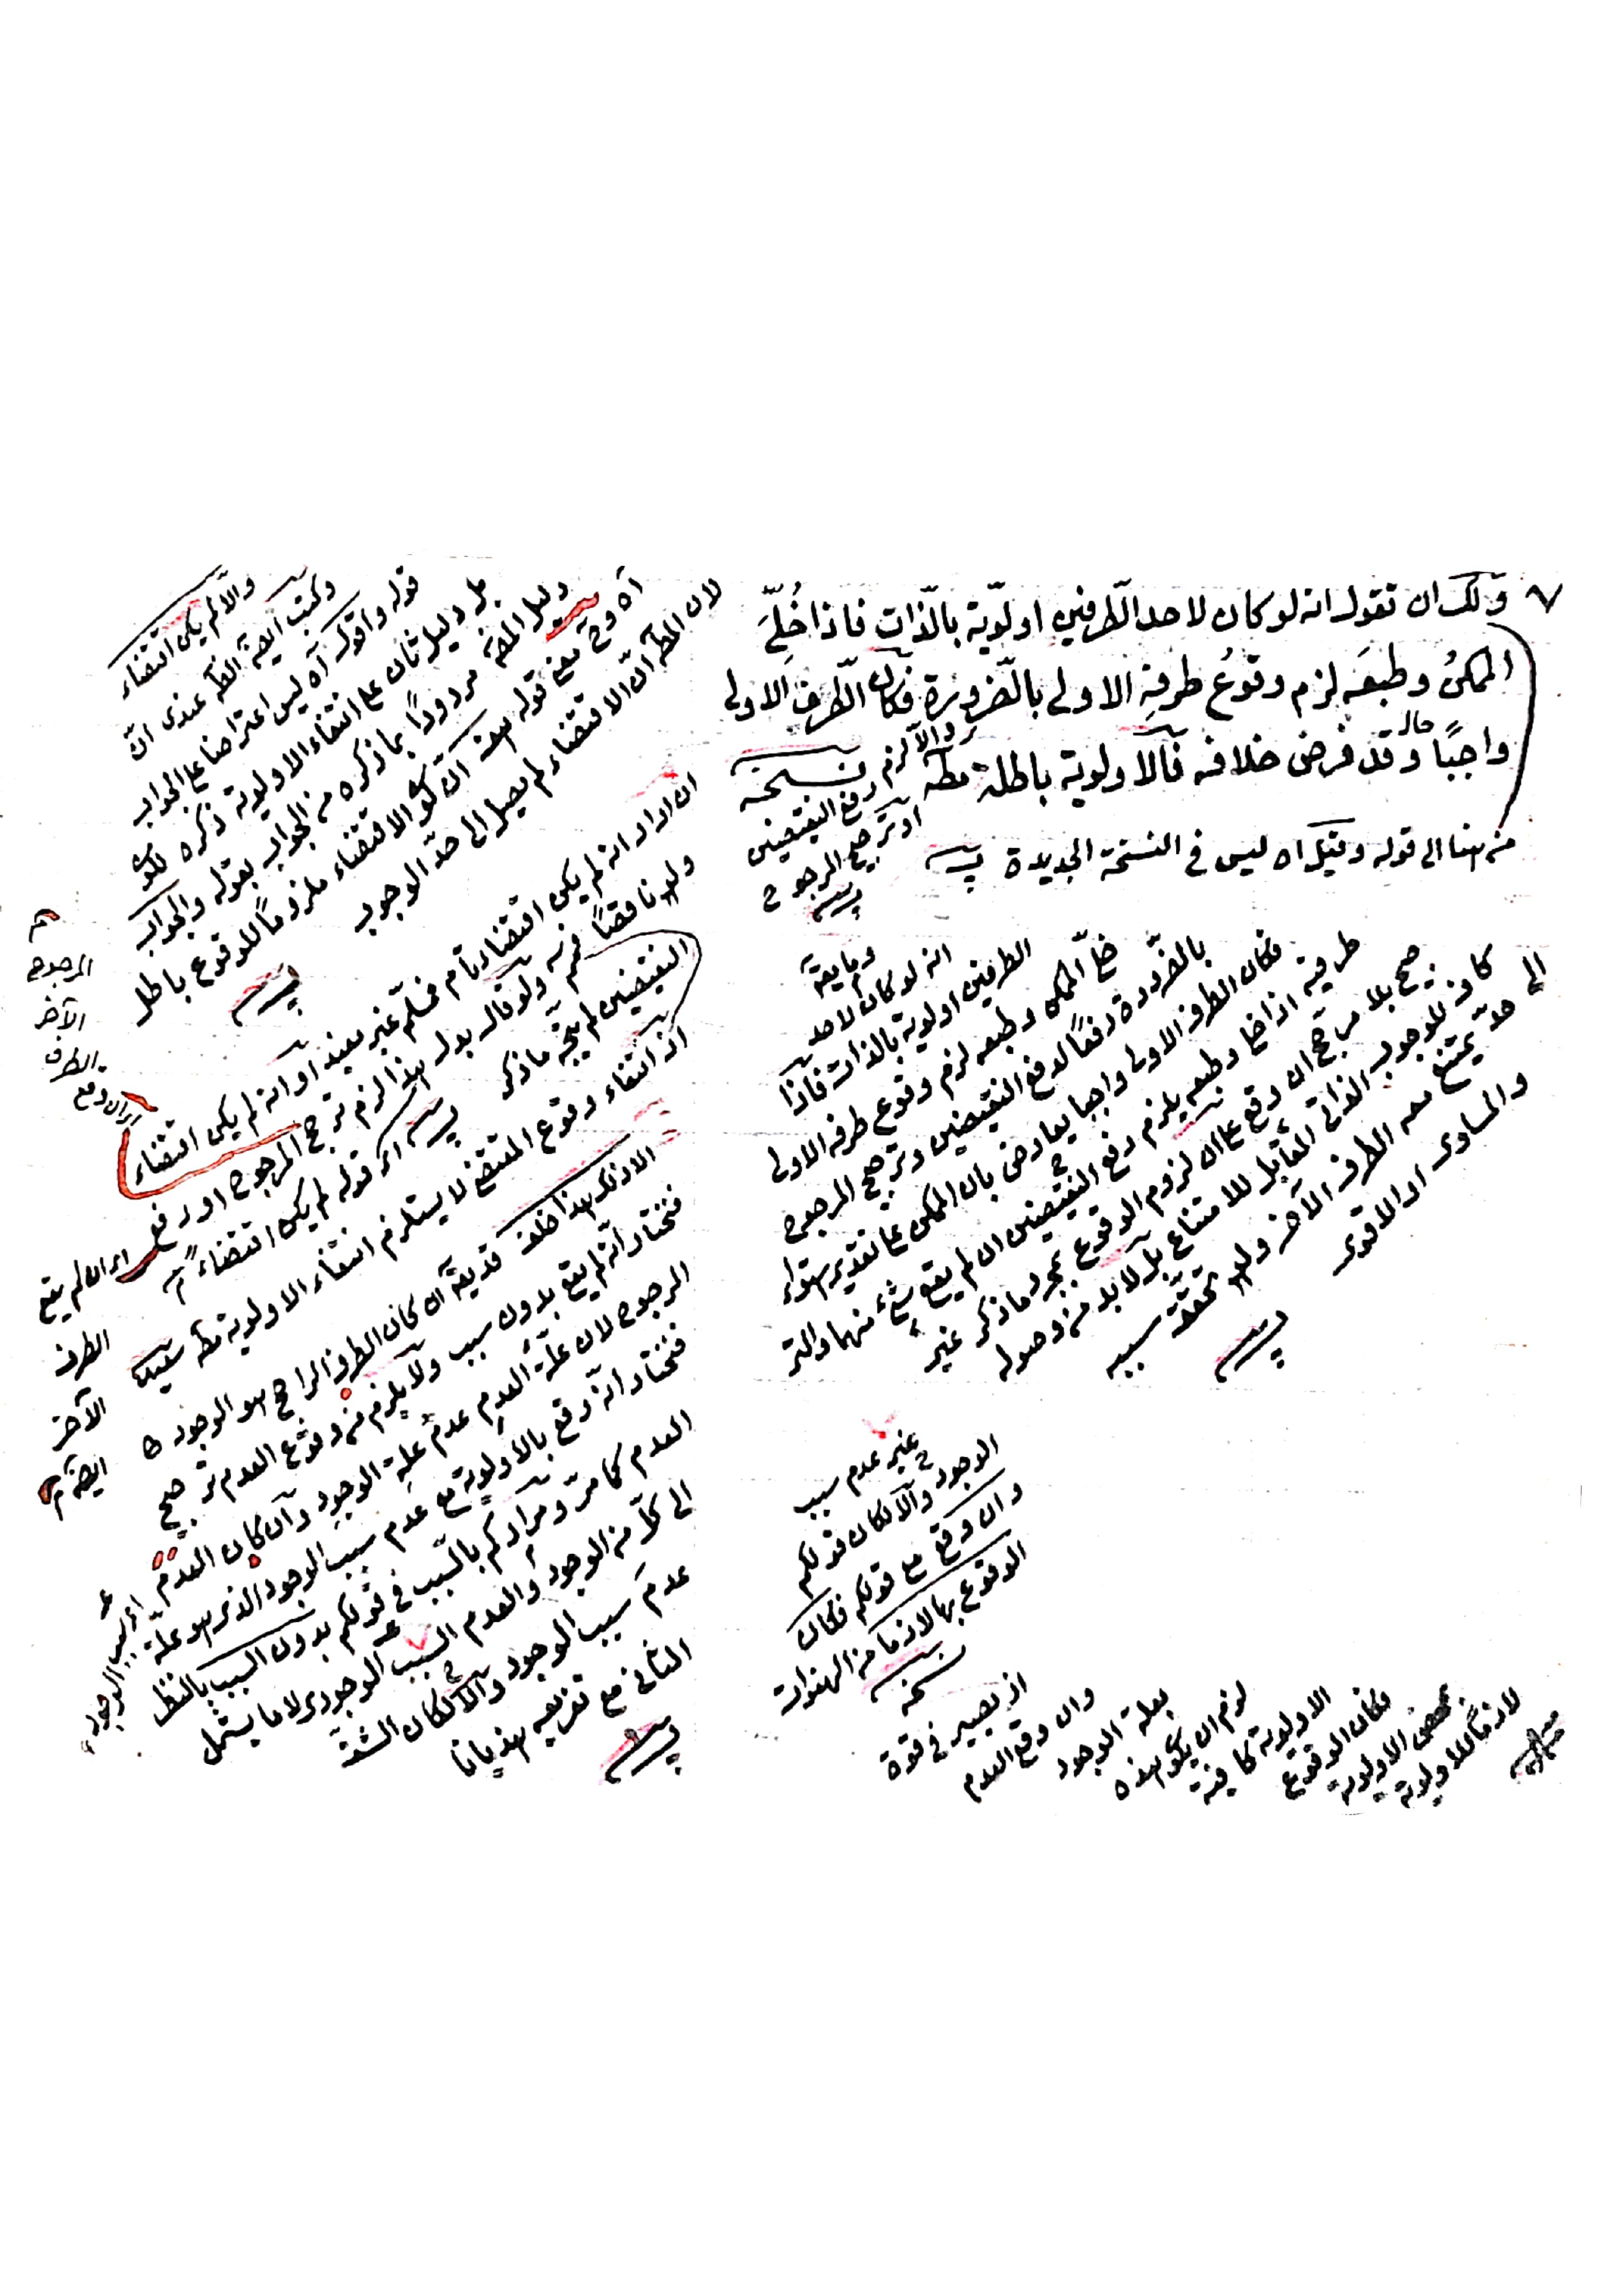 ولك ان تقول انه لو كان لاحد الطّرفين اولوّية بالّذات فاذا خُلِّيَ
الممكنُ وطبعَه لزم وقوعُ طرفِه الاولى بالضّرورة فكان الطّرف الاولى
واجبًا وقد فرض خلافه فالاولوية باطلة مطه
هال
والا لزم رفع النقيضين
او ترجيح المرجوح
نسخه
من هنا الى قوله وقيل اه ليس في النسخة الجديدة
انه لو كان لاحد
الطرفين اولوية بالذات فاذا
خلّ الممكن وطبعه لزم وقوع طرفه الاولى
بالضّرورة دفعًا لرفع النقيضين وترجيح المرجوح
فكان الطرف الاولى واجبا يعارض بان الممكن على تقدير استواء
طرفيه اذا خلى وطبعه يلزم رفع النقيضين ان لم يقع شئ منهما والتر
جيح بلا مرجح ان وقع على ان لزوم الوقوع بمجرد ما ذكر غير
كاف للوجوب الذاتى المقابل للامتناع بل لا بد من وصوله
الى حدّ يمتنع معه الطرف الآخر ولو تحقق سببه
والمساوى او الاقوى
غير عدم سبب
الوجود والا لكان قولكم
وان وقع مع قولكم فكان
الوقوع بها لازما من الهفوات
نسخه
لازمًا للاولوية
الاولوية
فكان الوقوع
الاولوية كافية
لزم ان يكون هذه
بعلة الوجود
وان وقع العدم
اذ يصير في قوة
والّا لم يكن اقتضاء
وكتب ايضًا الظ عندى ان
قوله واقول آه ليس اعتراضا على الجواب
بل دليل ثان على انتفاء الاولوية ذكره لكون
دليل المص مردودًا بما ذكره من الجواب بقوله والجواب
آه وح معنى قوله هف ان كون الاقتضاء ملزومًا للوقوع باطل
لان المط ان الاقتضاء لم يصل الى حدّ الوجوب
ان اراد انه لم يكن اقتضاء تام فمسلّم غير مفيد او انه لم يكن اقتضاء
ولو ناقصًا فم ولو قال بدل هذا لزم ترجيح المرجوح او رفع
النقيضين لم يتجه ما ذكر
اى قوله لم يكن اقتضاء
اذ انتفاء وقوع المقتضى لا يستلزم انتفاء الاولوية
الطرف
الآخر
المرجوح
اى ان وقع
اى ان لم يقع
الطرف
الآخر
ايضا
الا ترى هذا خلف قد يقال ان كان الطرف الراجح هو الوجود
فنختار انه لم يقع بدون سبب ولا يلزم من وقوع العدم ترجيح
المرجوح لان علّة العدم عدم علة الوجود وان كان العدم
فنختار انّه وقع بالاولوية مع عدم سبب الوجود الذى هو علة
العدم كما مرّ ومرادكم بالسّبب في قولكم بدون السبب بالنظر
الى كلّ من الوجود والعدم السبب الوجودى لا ما يشمل
عدم سبب الوجود والا لكان الشق
الثانى مع تفريعه هذيانا
اى سبب الوجود